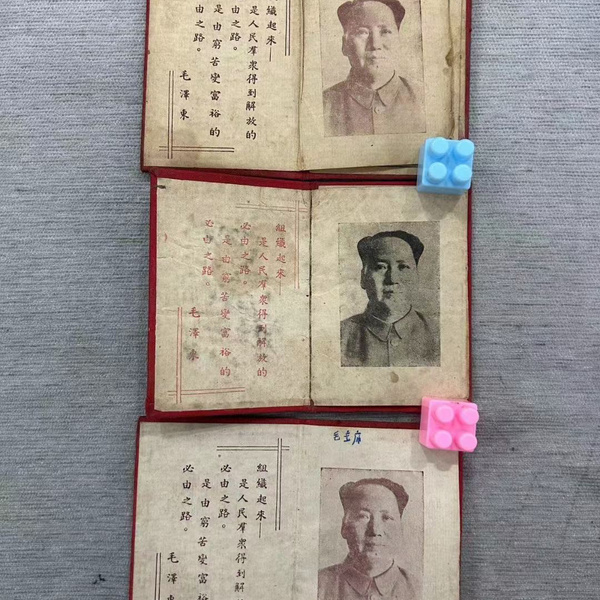 組織起來——
是人民羣衆得到解放的
由之路。
是由窮苦變富裕的
由之路。
毛澤東
組織起來——
是人民羣衆得到解放的
必由之路。
是由窮苦變富裕的
必由之路。
毛澤東
毛主席
組織起來——
是人民羣衆得到解
必由之路。
是由窮苦變富裕
必由之路。
毛澤